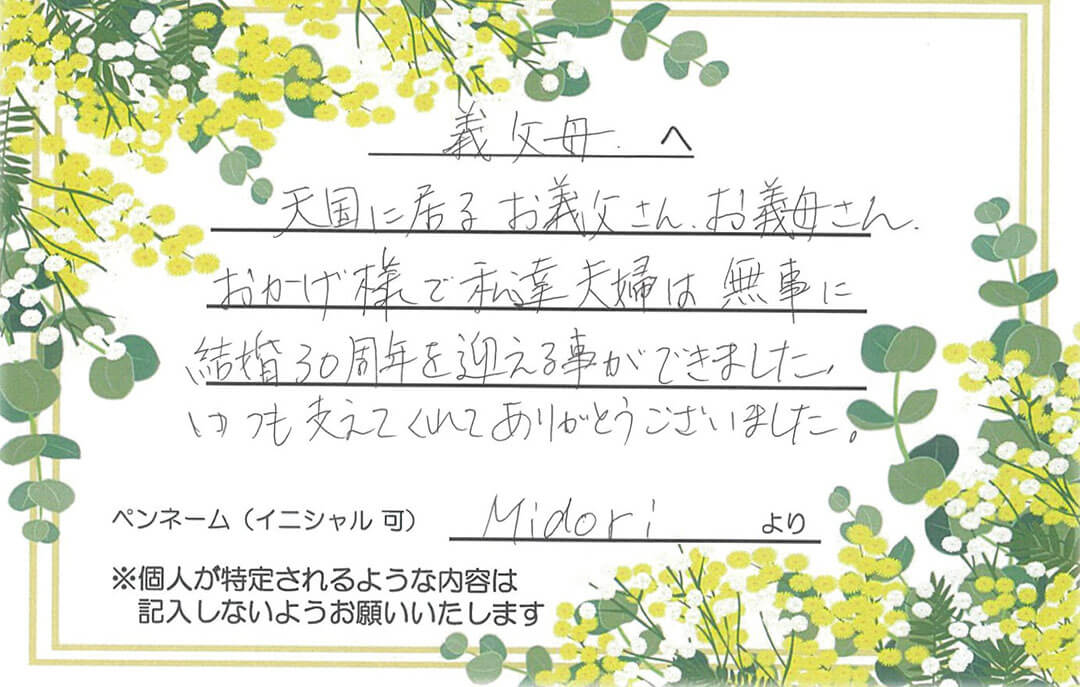 義父母 へ
天国に居る お義父さん、お義母さん、
おかげ様で私達夫婦は 無事に
結婚30周年を迎える事ができました、
いつも支えてくれてありがとうございました。
ペンネーム（イニシャル 可） Midori より
※個人が特定されるような内容は
記入しないようお願いいたします